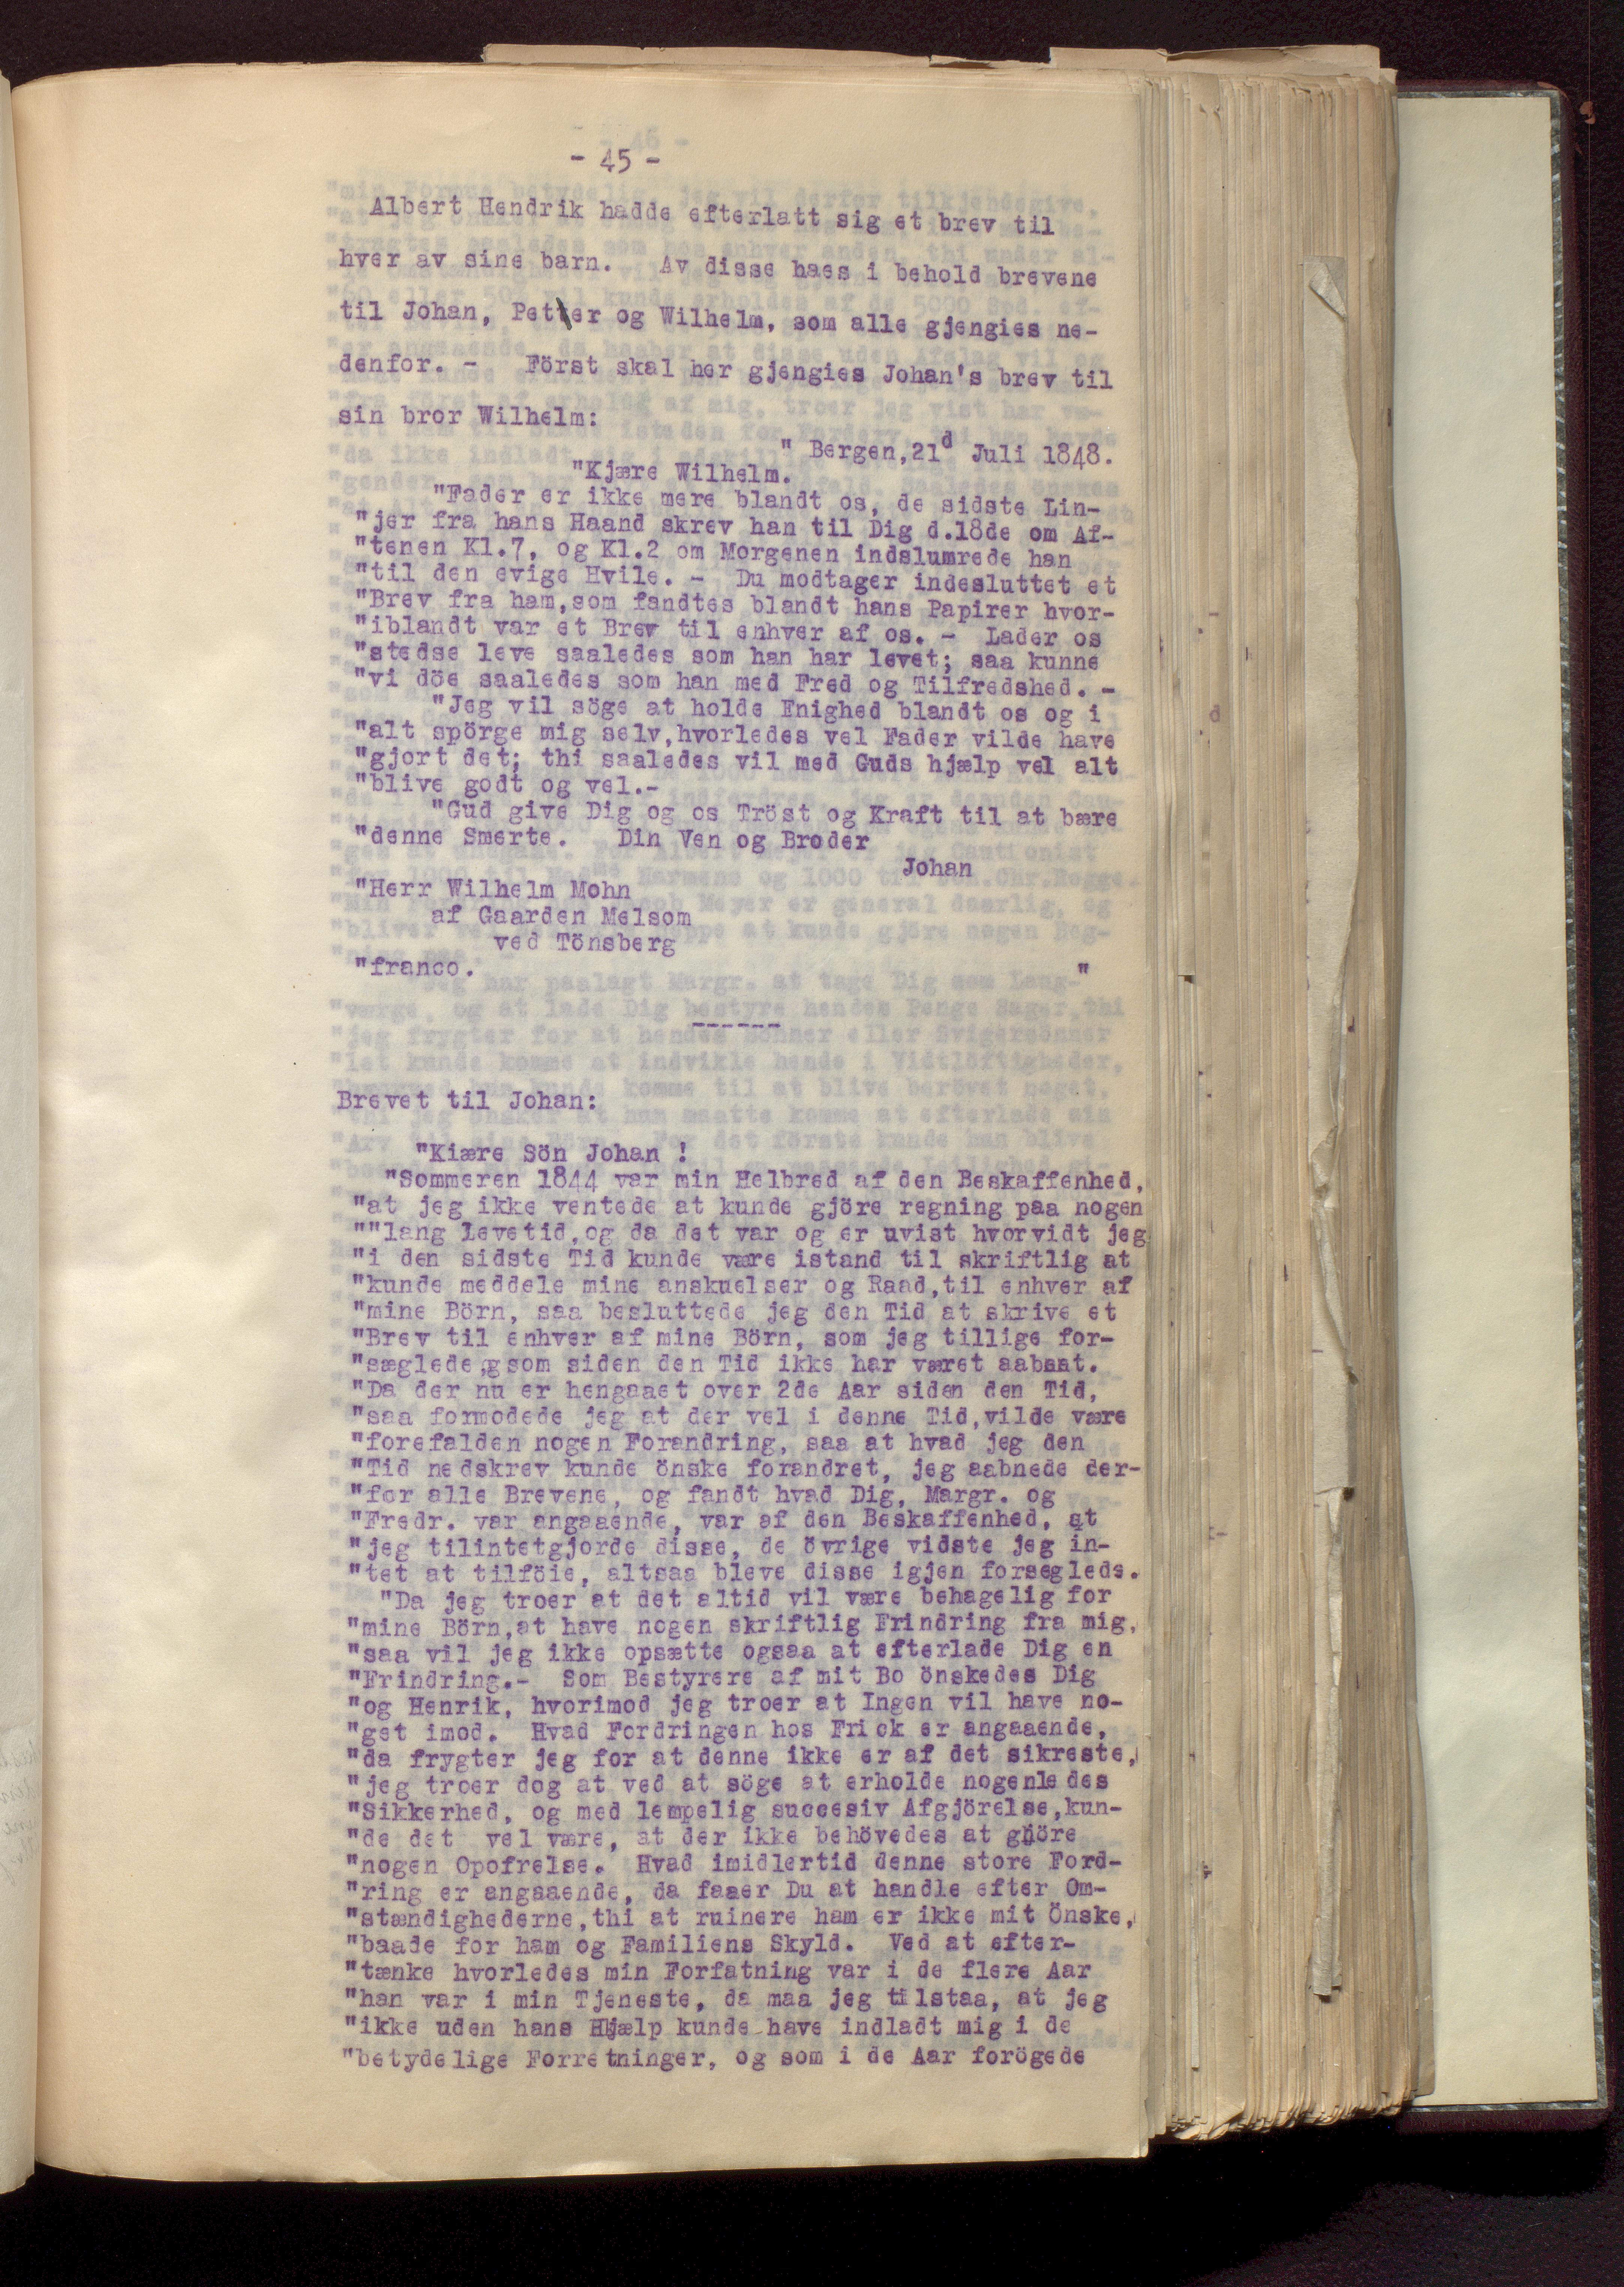 - 45 -
Albert Hendrik hadde efterlatt sig et brev til
hver av sine barn. Av disse haes i behold brevene
til Johan, Petter og Wilhelm, som alle gjengies ne-
denfor. - Först skal her gjengies Johan's brev til
sin bror Wilhelm:
" Bergen, 21d Juli 1848.
"Kjære Wilhelm.
"Fader er ikke mere blandt os, de sidste Lin-
"jer fra hans Haand skrev han til Dig d.18de om Af-
"tenen Kl.7, og Kl.2 om Morgenen indslumrede han
"til den evige Hvile. - Du modtager indesluttet et
"Brev fra ham, som fandtes blandt hans Papirer hvor-
"iblandt var et Brev til enhver af os. - Lader os
"stedse leve saaledes som han har levet; saa kunne
"vi döe saaledes som han med Fred og Tilfredshed. -
"Jeg vil söge at holde Enighed blandt os og i
"alt spörge mig selv, hvorledes vel Fader vilde have
"gjort det; thi saaledes vil med Guds hjælp vel alt
"blive godt og vel.-
"Gud give Dig og os Tröst og Kraft til at bære
"denne Smerte. Din Ven og Broder
Johan
"Herr Wilhelm Mohn
af Gaarden Melsom
ved Tönsberg
"franco. "
------
Brevet til Johan:
"Kiære Sön Johan !
"Sommeren 1844 var min Helbred af den Beskaffenhed,
"at jeg ikke ventede at kunde gjöre regning paa nogen
""lang levetid, og da det var og er uvist hvorvidt jeg
"i den sidste Tid kunde være istand til skriftlig at
"kunde meddele mine anskuelser og Raad, til enhver af
"mine Börn, saa besluttede jeg den Tid at skrive et
"Brev til enhver af mine Börn, som jeg tillige for-
"sæglede, som siden den Tid ikke har været aabnat.
"Da der nu er hengaaet over 2de Aar siden den Tid,
"saa formodede jeg at der vel i denne Tid, vilde være
"forefalden nogen Forandring, saa at hvad jeg den
"Tid nedskrev kunde önske forandret, jeg aabnede der-
"for alle Brevene, og fandt hvad Dig, Margr. og
"Fredr. var angaaende, var af den Beskaffenhed, at
"jeg tilintetgjorde disse, de övrige vidste jeg in-
"tet at tilföie, altsaa bleve disse igjen forseglede.
"Da jeg troer at det altid vil være behagelig for
"mine Börn, at have nogen skriftlig Erindring fra mig,
"saa vil jeg ikke opsætte ogsaa at efterlade Dig en
"Erindring.- Som Bestyrere af mit Bo önskedes Dig
"og Henrik, hvorimod jeg troer at Ingen vil have no-
"get imod. Hvad Fordringen hos Frick er angaaende,
"da frygter jeg for at denne ikke er af det sikreste,
"jeg troer dog at ved at söge at erholde nogenledes
"Sikkerhed, og med lempelig succesiv Afgjörelse, kun-
"de det vel være, at der ikke behövedes at gjöre
"nogen Opofrelse. Hvad imidlertid denne store Ford-
"ring er angaaende, da faaer Du at handle efter Om-
"stændighederne, thi at ruinere ham er ikke mit Önske,
"baade for ham og Familiens Skyld. Ved at efter-
"tænke hvorledes min Forfatning var i de flere Aar
"han var i min Tjeneste, da maa jeg tilstaa, at jeg
"ikke uden hans Hjælp kunde have indladt mig i de
"betydelige Forretninger, og som i de Aar forögede